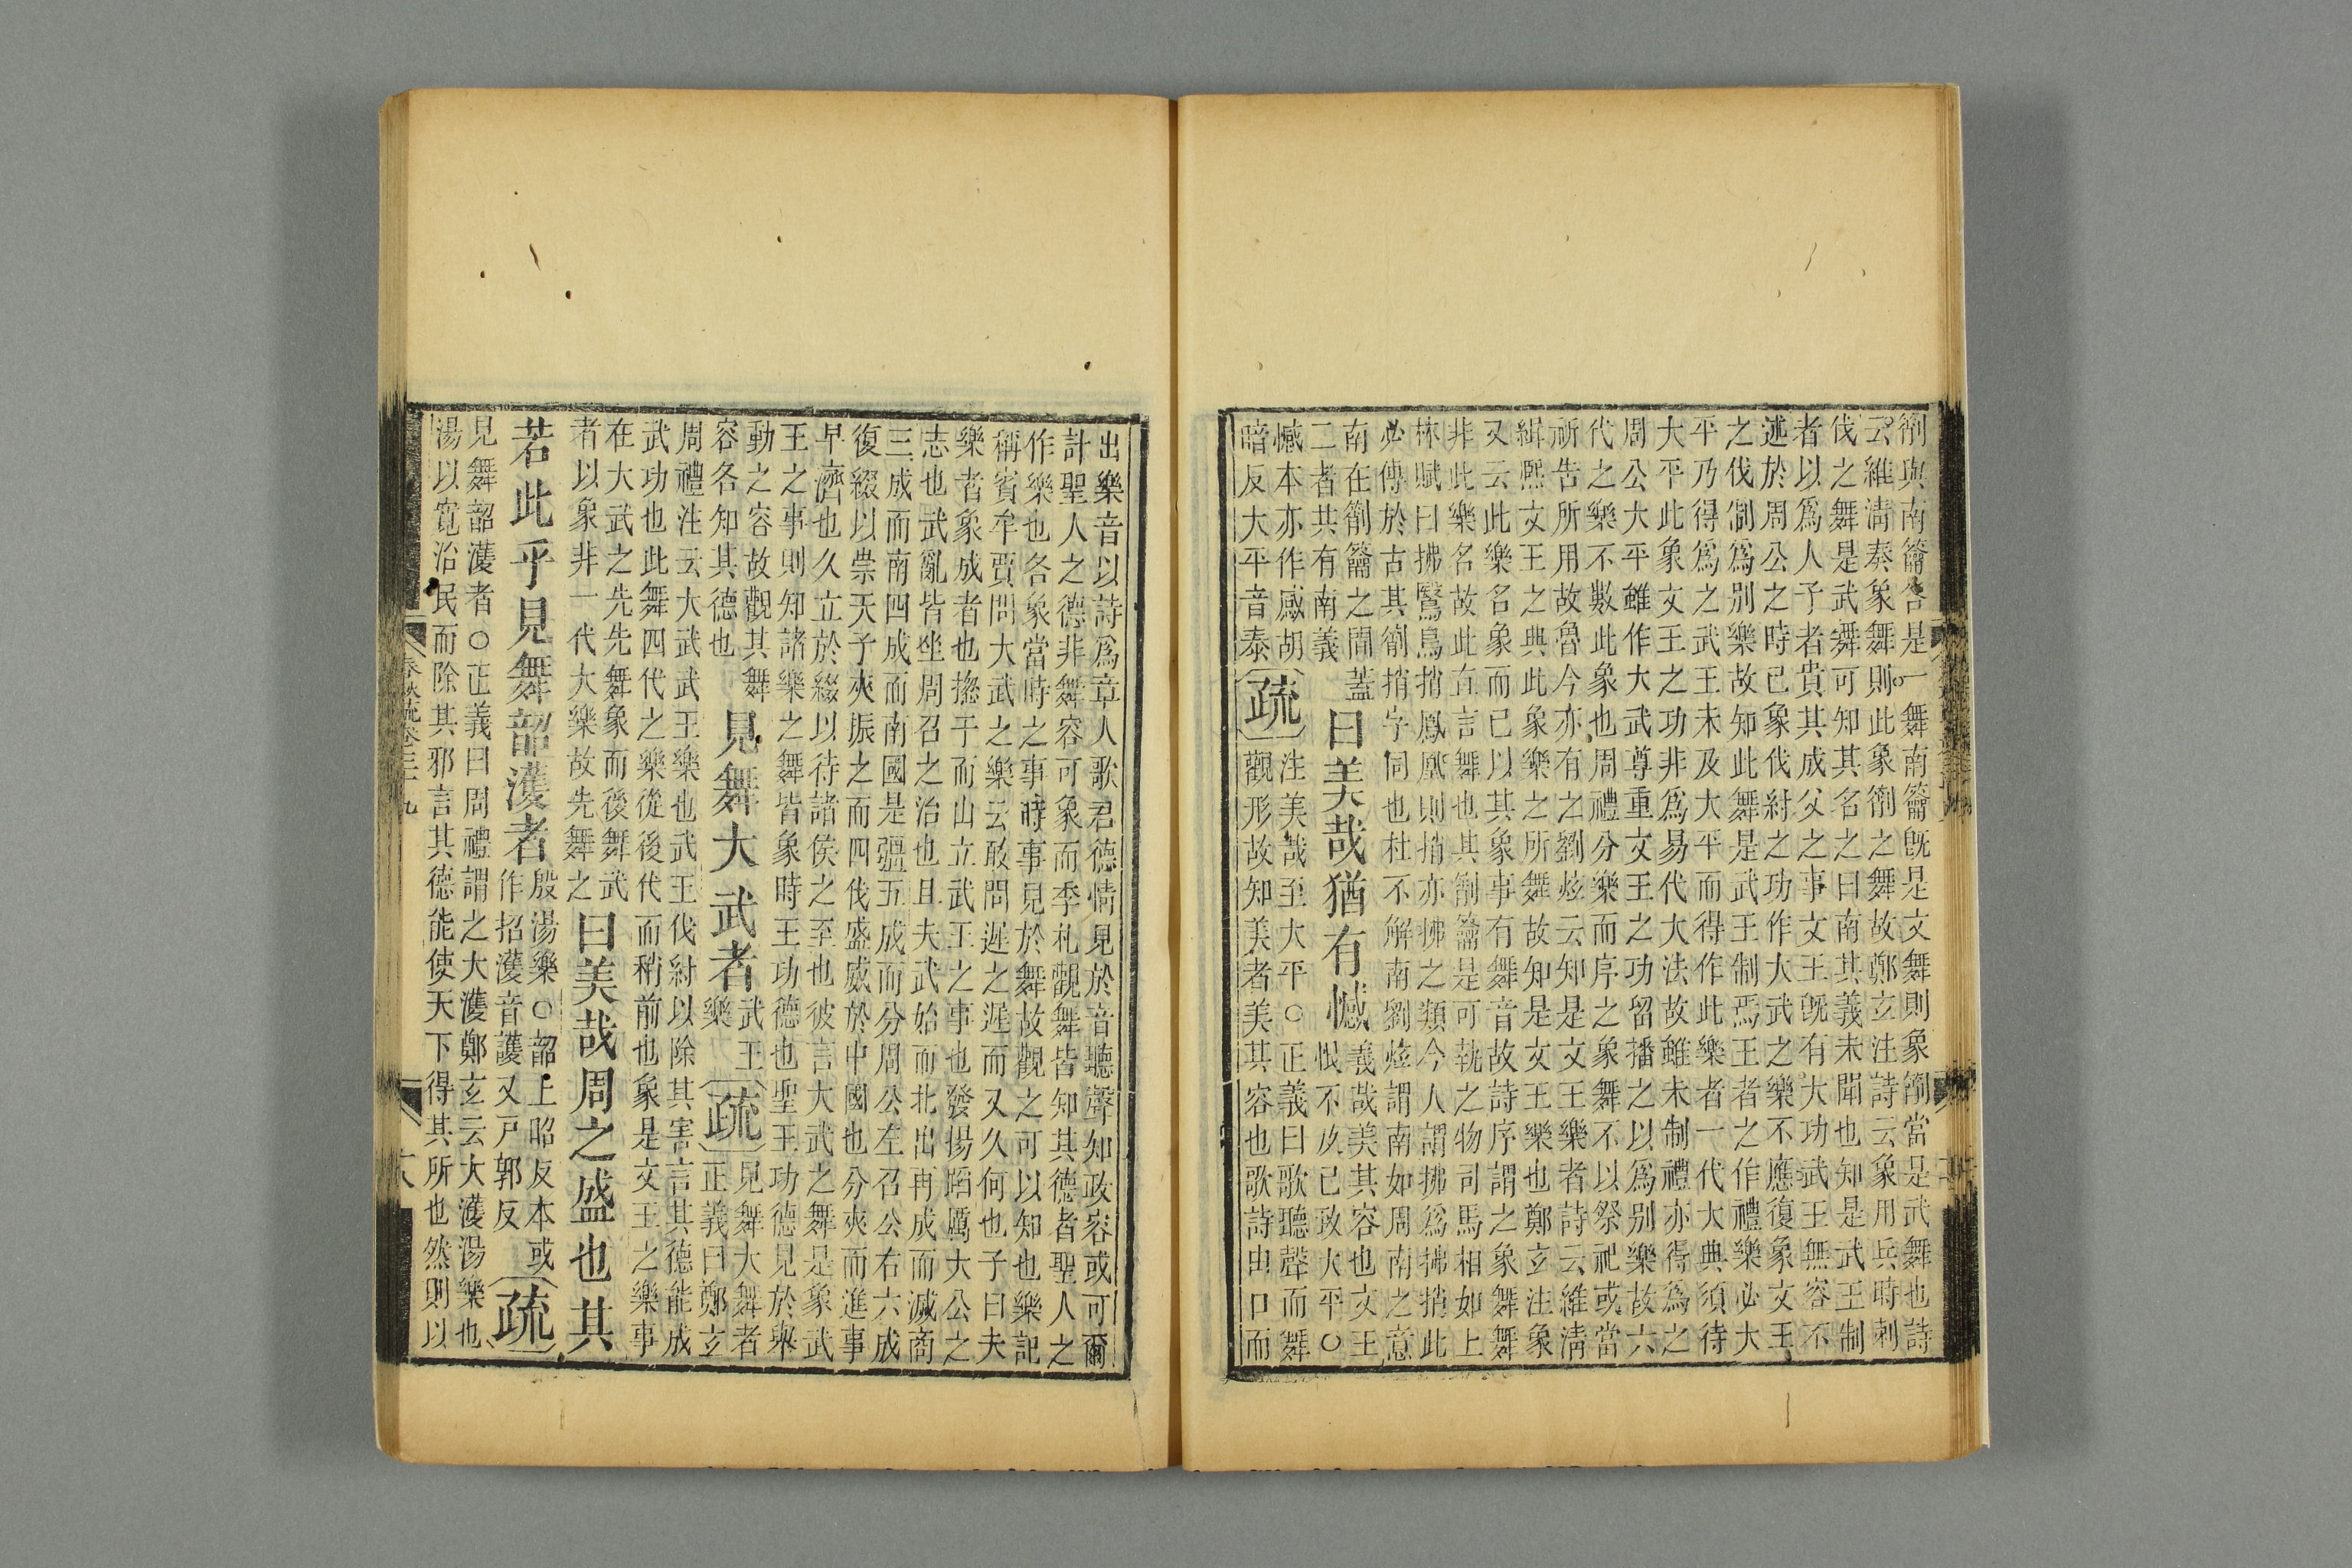 箾與南籥各是一舞南籥旣是文舞則象箾當是武舞也詩
云維淸奏象舞則此象箾之舞故鄭玄注詩云象用兵時刺
伐之舞是武舞可知其名之曰南其義未聞也知是武王制
者以爲人子者貴其成父之事文王旣有大功武王無容不
述於周公之時已象伐紂之功作大武之樂不應復象文王
之伐制爲別樂故知此舞是武王制焉王者之作禮樂必大
平乃得爲之武王未及大平而得作此樂者一代大典須待
大平此象文王之功非爲易代大法故雖未制禮亦得爲之
周公大平雖作大武尊重文王之功留播之以爲别樂故六
代之樂不數此象也周禮分樂而序之象舞不以祭祀或當
祈告所用故魯今亦有之劉炫云知是文王樂者詩云維淸
緝熙文王之典此象樂之所舞故知是文王樂也鄭玄注象
又云此樂名象而已以其象事有舞音故詩序謂之象舞舞
非此樂名故此直言舞也其箾籥是可執之物司馬相如上
林賦曰拂鷖鳥捎鳳凰則捎亦拂之類今人謂拂爲拂捎此
必傳於古其箾捎字同也杜不解南劉炫謂南如周南之意
南在箾籥之間蓋
二者其有南義
曰美哉猶有憾
義哉美其容也文王
恨不及已致大平○
憾本亦作感胡
暗反大平音泰
疏
注美哉至大平○正義曰歌聽聲而舞
觀形故知美者美其容也歌詩由口而
出樂音以詩爲章人歌君德情見於音聽聲知政容或可爾
計聖人之德非舞容可象而季札觀舞皆知其德者聖人之
作樂也各象當時之事時事見於舞故觀之可以知也樂記
稱賓牟賈問大武之樂云敢問遲之遲而又久何也子曰夫
樂者象成者也揔干而山立武王之事也發揚蹈厲大公之
志也武亂皆坐周召之治也且夫武始而北出再成而滅商
三成而南四成而南國是彊五成而分周公左召公右六成
復綴以崇天子夾振之而四伐盛威於中國也分夾而進事
早濟也久立於綴以待諸侯之至也彼言大武之舞是象武
王之事則知諸樂之舞皆象時王功德也聖王功德見於舉
動之容故觀其舞
容各知其德也
見舞大武者
武王
樂
疏
見舞大舞者
正義曰鄭玄
周禮注云大武武王樂也武王伐紂以除其害言其德能成
武功也此舞四代之樂從後代而稍前也象是文王之樂事
在大武之先先舞象而後舞武
者以象非一代大樂故先舞之
曰美哉周之盛也其
若此乎見舞韶濩者
殷湯樂○韶上昭反本或
作招濩音護又戸郭反
疏
見舞韶濩者○正義曰周禮謂之大濩鄭玄云大濩湯樂也
湯以寛治民而除其邪言其德能使天下得其所也然則以